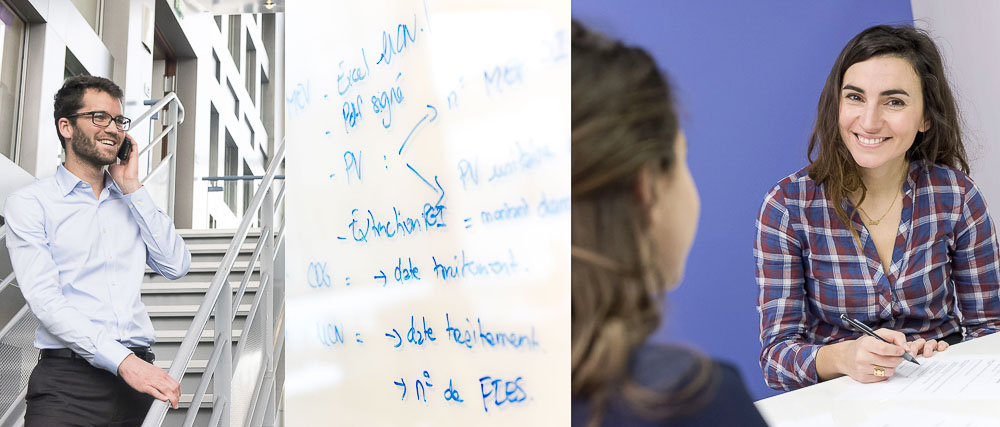 MEV - Excel UCN.
- Pdf signé
n° MEV
- PV :
PV unitaire
- Extraction GI = montant
CDG = → date traitement.
UCN = → date traitement.
→ n° de FIES.